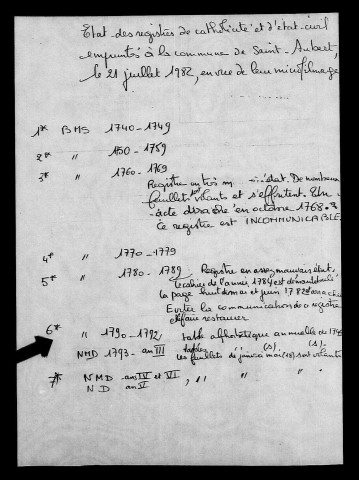 Etat des registres de catholicité et d'état-civil
empruntés à la commune de Saint-Aubert,
le 21 juillet 1982, en vue de leur microfilmage
1* BMS 1740-1749
2* " 1750-1759
3* " 1760-1769
Registre en très m état. De nombreux
feuillets volants et s'effritent. Un
acte déchiré en octobre 1768.
ce registre est INCOMMUNICABLE.
4* " 1770-1779
5* " 1780-1789 Registre en assez mauvais état.
le cahier de l'année 1784 est
la page de mai et juin 1782
Eviter la communication de ce registre
et faire restaurer
6* " 1790-1792 table alphabétique annuelle de
NMD 1793-an III tables " (s). (s).
les feuillets de sont volants
7* NMD an IV et VI " " " "
ND an V